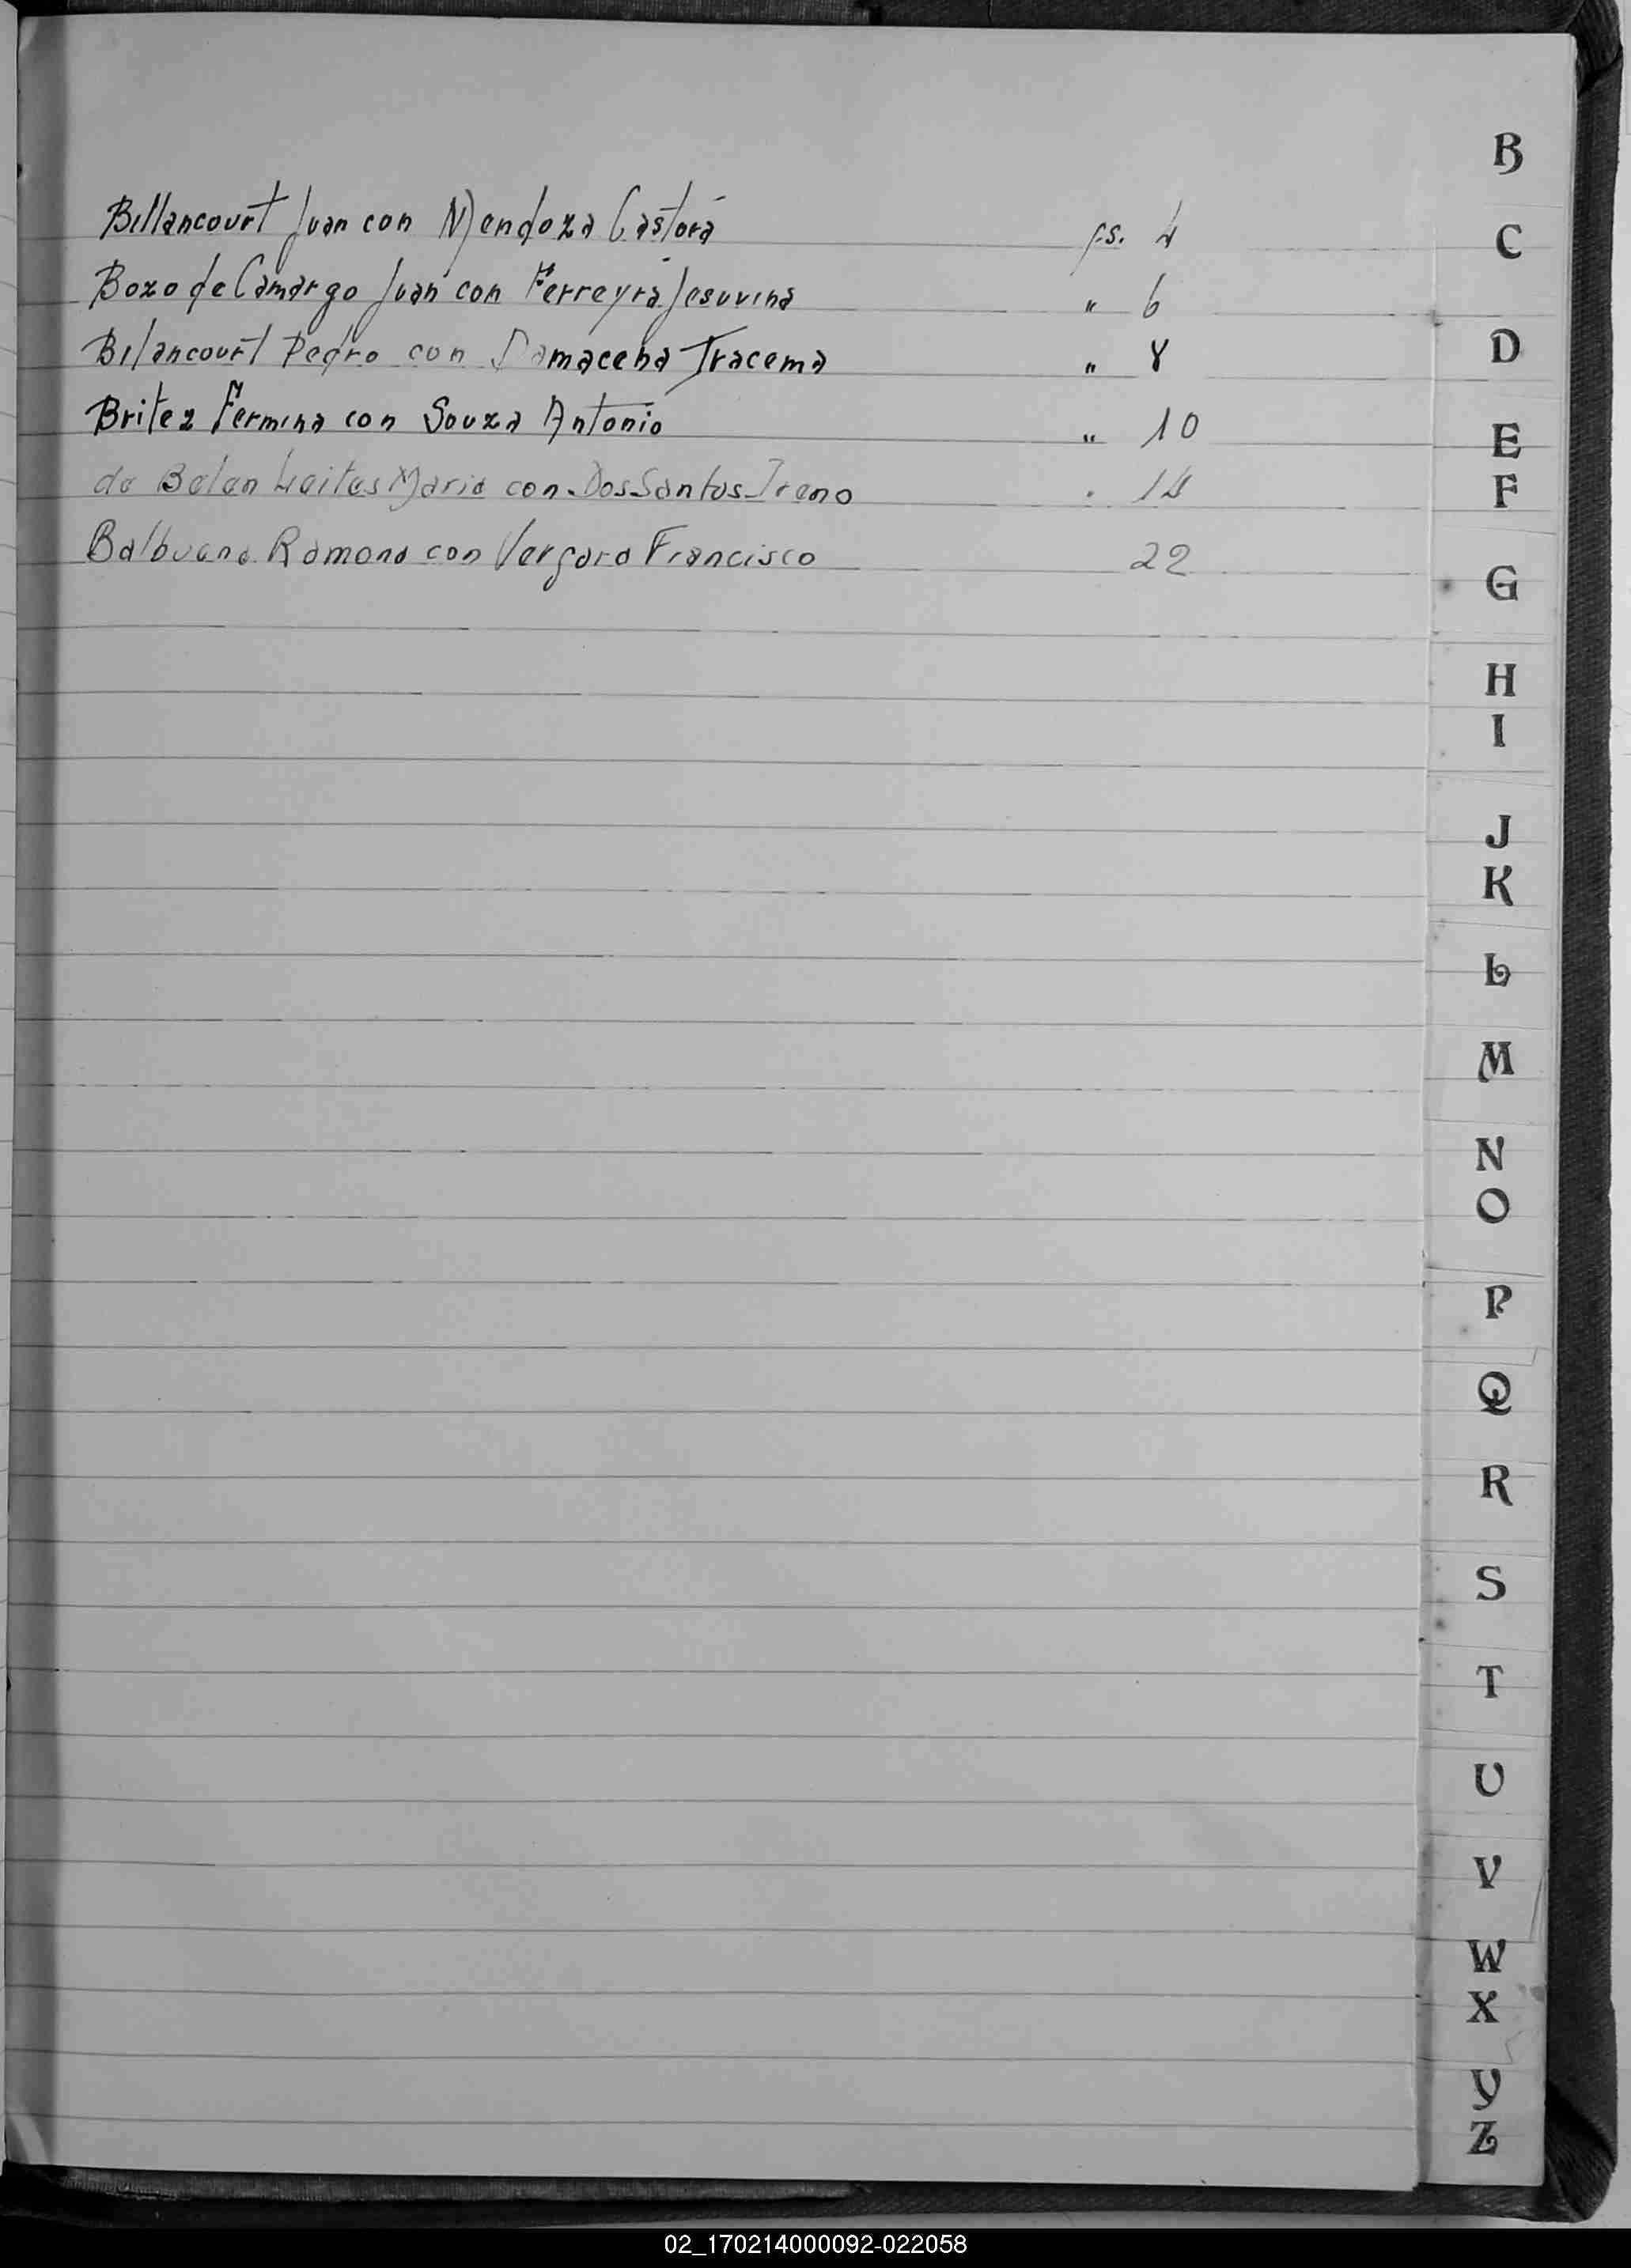 Billancourt Juan con Mendoza Castora fs. 4
Bozo de Camargo Juan con Ferreyra Jesuvina " 6
Bilancourt Pedro con Damacena Iracema " 8
Britez Fermina con Souza Antonio " 10
de Belen Leites Maria con Dos Santos Ireno " 14
Balbuena Ramona con Vergara Francisco 22
B
C
D
E
F
G
H
I
J
K
L
M
N
O
P
Q
R
S
T
U
V
W
X
Y
Z
02_170214000092-022058